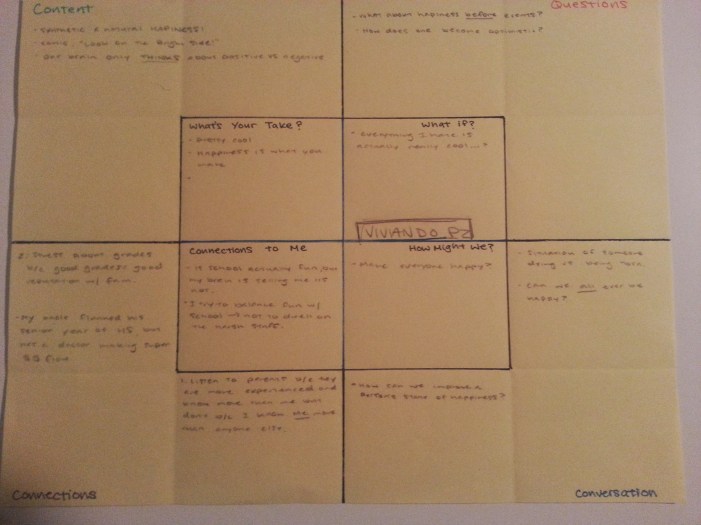 Content
- synthetic & natural HAPPINESS!
- comic: "Look on the Bright Side!"
- our brain only THINKS about positive vs negative
Questions
- What about happiness before events?
- How does one become optimistic?
What's Your Take?
- pretty cool
- happiness is what you make
What if?
- everything I have is actually really cool...?
VIVIANDO P2
Connections to Me
- Is school actually fun
my brain is telling me it's not.
- I try to balance fun w/ school
How Might We?
- Make everyone happy?
2. about grades
b/c good grades = good
w/ fam.
- My uncle flunked his
senior year of HS, but
not a doctor making super
- Situation of someone
dying vs being born
- Can we all ever be
happy?
1. Listen to parents b/c they
are more experienced and
know more than me but
don't b/c I know me more
than anyone else.
- How can we improve a
persons state of happiness?
Connections
Conversation